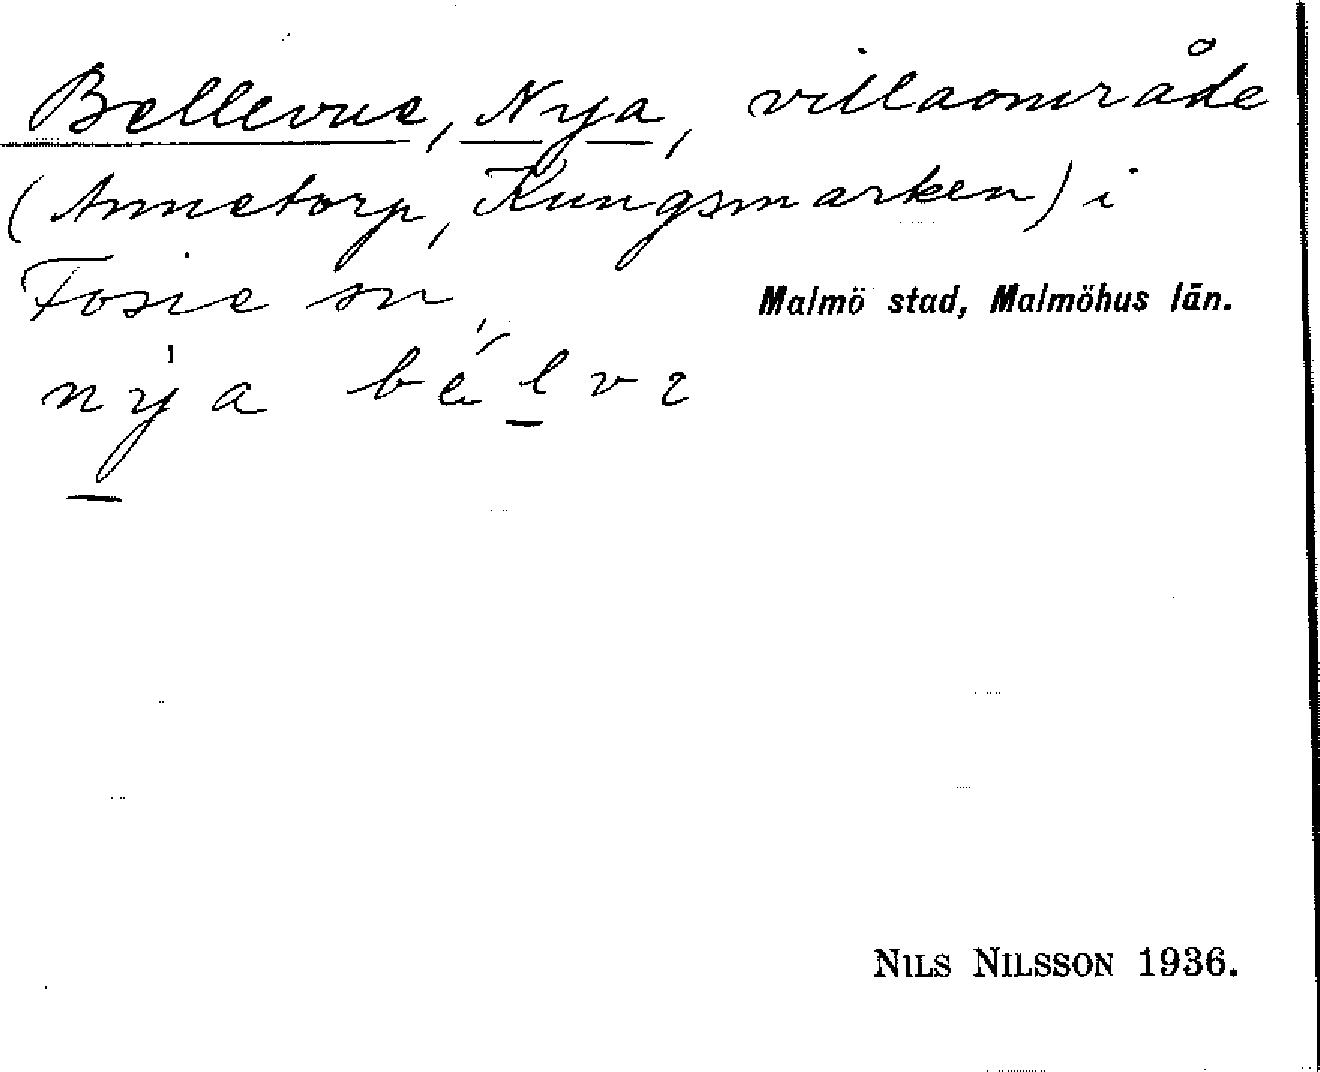 Bellevue, Nya, villaområde
(Annetorp, Kungsmarken) i
Fosie sn, Malmö stad, Malmöhus län.
nya bélvɛ
NILS NILSSON 1936.